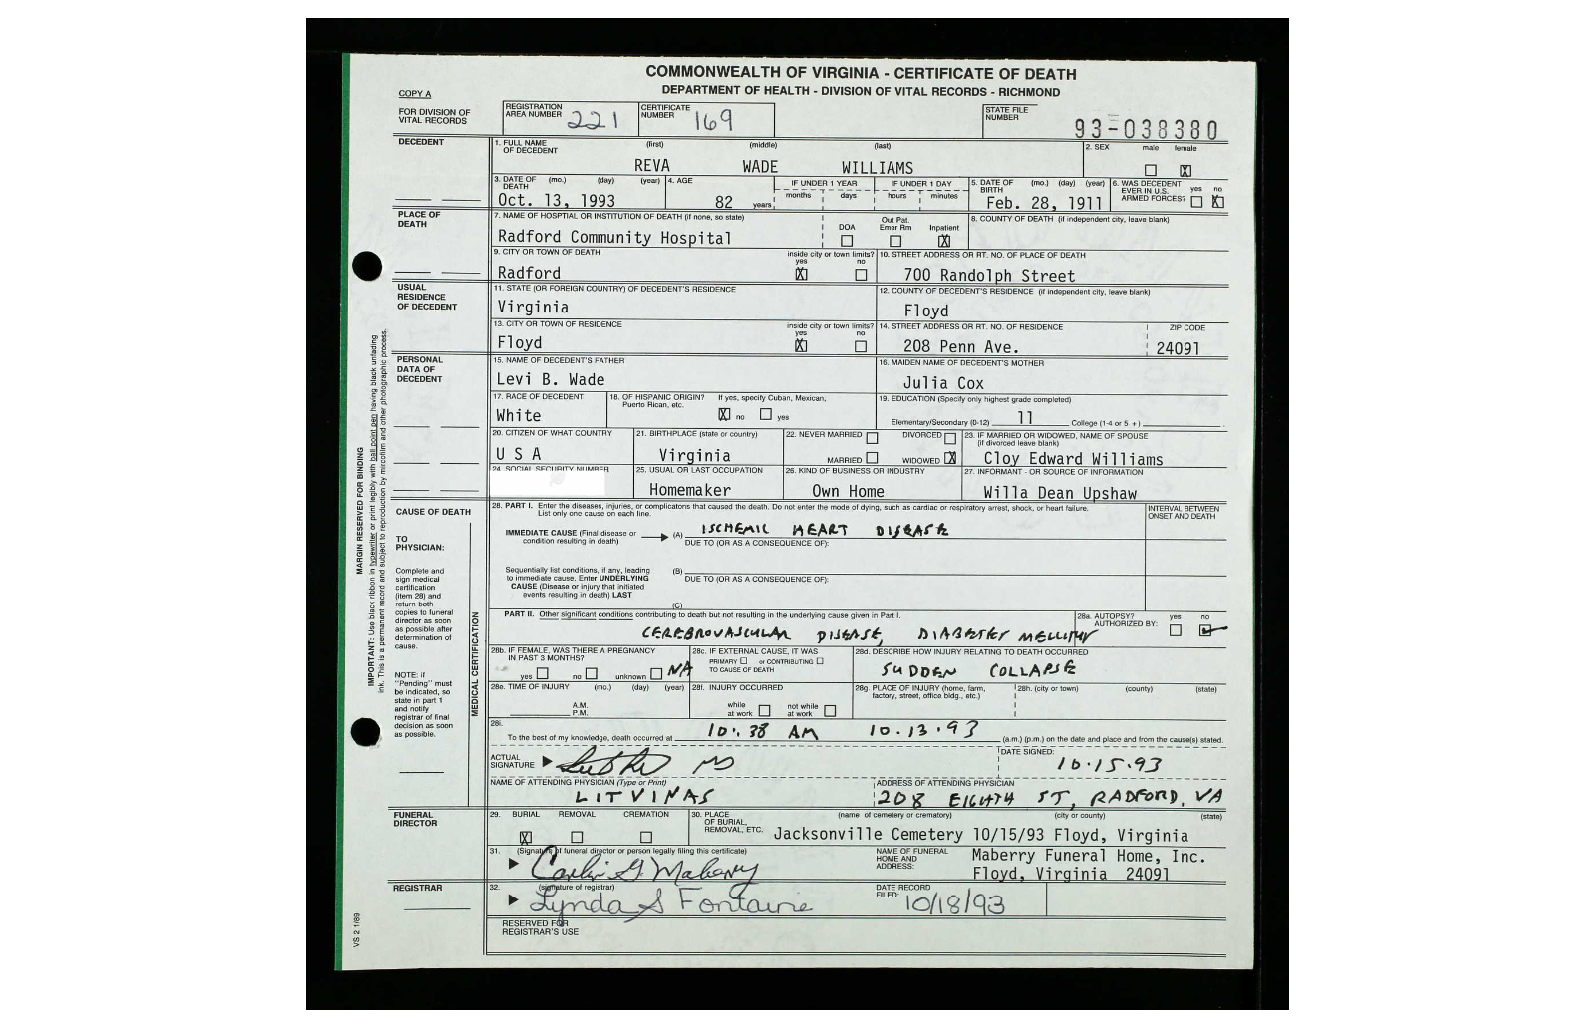 COMMONWEALTH OF VIRGINIA - CERTIFICATE OF DEATH
DEPARTMENT OF HEALTH - DIVISION OF VITAL RECORDS - RICHMOND
COPY A
FOR DIVISION OF VITAL RECORDS
REGISTRATION AREA NUMBER 221
CERTIFICATE NUMBER 169
STATE FILE NUMBER 93-038380
DECEDENT
1. FULL NAME OF DECEDENT (first) (middle) (last)
REVA WADE WILLIAMS
2. SEX male female X
3. DATE OF DEATH (mo.) (day) (year)
Oct. 13, 1993
4. AGE 82 years
IF UNDER 1 YEAR months days
IF UNDER 1 DAY hours minutes
5. DATE OF BIRTH (mo.) (day) (year)
Feb. 28, 1911
6. WAS DECEDENT EVER IN U.S. ARMED FORCES? yes no X
PLACE OF DEATH
7. NAME OF HOSPTIAL OR INSTITUTION OF DEATH (if none, so state)
Radford Community Hospital
DOA Out Pat. Emer Rm Inpatient X
8. COUNTY OF DEATH (if independent city, leave blank)
9. CITY OR TOWN OF DEATH
Radford
inside city or town limits? yes X no
10. STREET ADDRESS OR RT. NO. OF PLACE OF DEATH
700 Randolph Street
USUAL RESIDENCE OF DECEDENT
11. STATE (OR FOREIGN COUNTRY) OF DECEDENT'S RESIDENCE
Virginia
12. COUNTY OF DECEDENT'S RESIDENCE (if independent city, leave blank)
Floyd
13. CITY OR TOWN OF RESIDENCE
Floyd
inside city or town limits? yes X no
14. STREET ADDRESS OR RT. NO. OF RESIDENCE ZIP CODE
208 Penn Ave. 24091
PERSONAL DATA OF DECEDENT
15. NAME OF DECEDENT'S FATHER
Levi B. Wade
16. MAIDEN NAME OF DECEDENT'S MOTHER
Julia Cox
17. RACE OF DECEDENT
White
18. OF HISPANIC ORIGIN? If yes, specify Cuban, Mexican, Puerto Rican, etc.
X no yes
19. EDUCATION (Specify only highest grade completed)
Elementary/Secondary (0-12) 11 College (1-4 or 5 +)
20. CITIZEN OF WHAT COUNTRY
U S A
21. BIRTHPLACE (state or country)
Virginia
22. NEVER MARRIED DIVORCED
MARRIED WIDOWED X
23. IF MARRIED OR WIDOWED, NAME OF SPOUSE (if divorced leave blank)
Cloy Edward Williams
24. SOCIAL SECURITY NUMBER
25. USUAL OR LAST OCCUPATION
Homemaker
26. KIND OF BUSINESS OR INDUSTRY
Own Home
27. INFORMANT - OR SOURCE OF INFORMATION
Willa Dean Upshaw
CAUSE OF DEATH
28. PART I. Enter the diseases, injuries, or complicatons that caused the death. Do not enter the mode of dying, such as cardiac or respiratory arrest, shock, or heart failure. List only one cause on each line.
INTERVAL BETWEEN ONSET AND DEATH
IMMEDIATE CAUSE (Final disease or condition resulting in death) (A) ISCHEMIC HEART DISEASE
DUE TO (OR AS A CONSEQUENCE OF):
Sequentially list conditions, if any, leading to immediate cause. Enter UNDERLYING CAUSE (Disease or injury that initiated events resulting in death) LAST
(B)
DUE TO (OR AS A CONSEQUENCE OF):
(C)
TO PHYSICIAN:
Complete and sign medical certification (item 28) and return both copies to funeral director as soon as possible after determination of cause.
NOTE: if "Pending" must be indicated, so state in part 1 and notify registrar of final decision as soon as possible.
MEDICAL CERTIFICATION
PART II. Other significant conditions contributing to death but not resulting in the underlying cause given in Part I.
CEREBROVASCULAR DISEASE, DIABETES MELLITUS
28a. AUTOPSY? AUTHORIZED BY: yes no
28b. IF FEMALE, WAS THERE A PREGNANCY IN PAST 3 MONTHS?
yes no unknown NA
28c. IF EXTERNAL CAUSE, IT WAS
PRIMARY or CONTRIBUTING TO CAUSE OF DEATH
28d. DESCRIBE HOW INJURY RELATING TO DEATH OCCURRED
SUDDEN COLLAPSE
28e. TIME OF INJURY (mo.) (day) (year)
A.M.
P.M.
28f. INJURY OCCURRED
while at work not while at work
28g. PLACE OF INJURY (home, farm, factory, street, office bldg., etc.)
28h. (city or town) (county) (state)
28i.
To the best of my knowledge, death occurred at 10:38 AM 10.13.93 (a.m.) (p.m.) on the date and place and from the cause(s) stated.
ACTUAL SIGNATURE MD
DATE SIGNED: 10.15.93
NAME OF ATTENDING PHYSICIAN (Type or Print)
LITVINAS
ADDRESS OF ATTENDING PHYSICIAN
208 EIGHTH ST, RADFORD, VA
FUNERAL DIRECTOR
29. BURIAL X REMOVAL CREMATION
30. PLACE OF BURIAL, REMOVAL, ETC. (name of cemetery or crematory) (city or county) (state)
Jacksonville Cemetery 10/15/93 Floyd, Virginia
31. (Signature of funeral director or person legally filing this certificate)
NAME OF FUNERAL HOME AND ADDRESS:
Maberry Funeral Home, Inc.
Floyd, Virginia 24091
REGISTRAR
32. (signature of registrar)
Lynda S Fontaine
DATE RECORD FILED: 10/18/93
RESERVED FOR REGISTRAR'S USE
MARGIN RESERVED FOR BINDING
IMPORTANT: Use black ribbon in typewriter or print legibly with ball point pen having black unfading ink. This is a permanent record and subject to reproduction by mircofilm and other photographic process.
VS 2 1/89